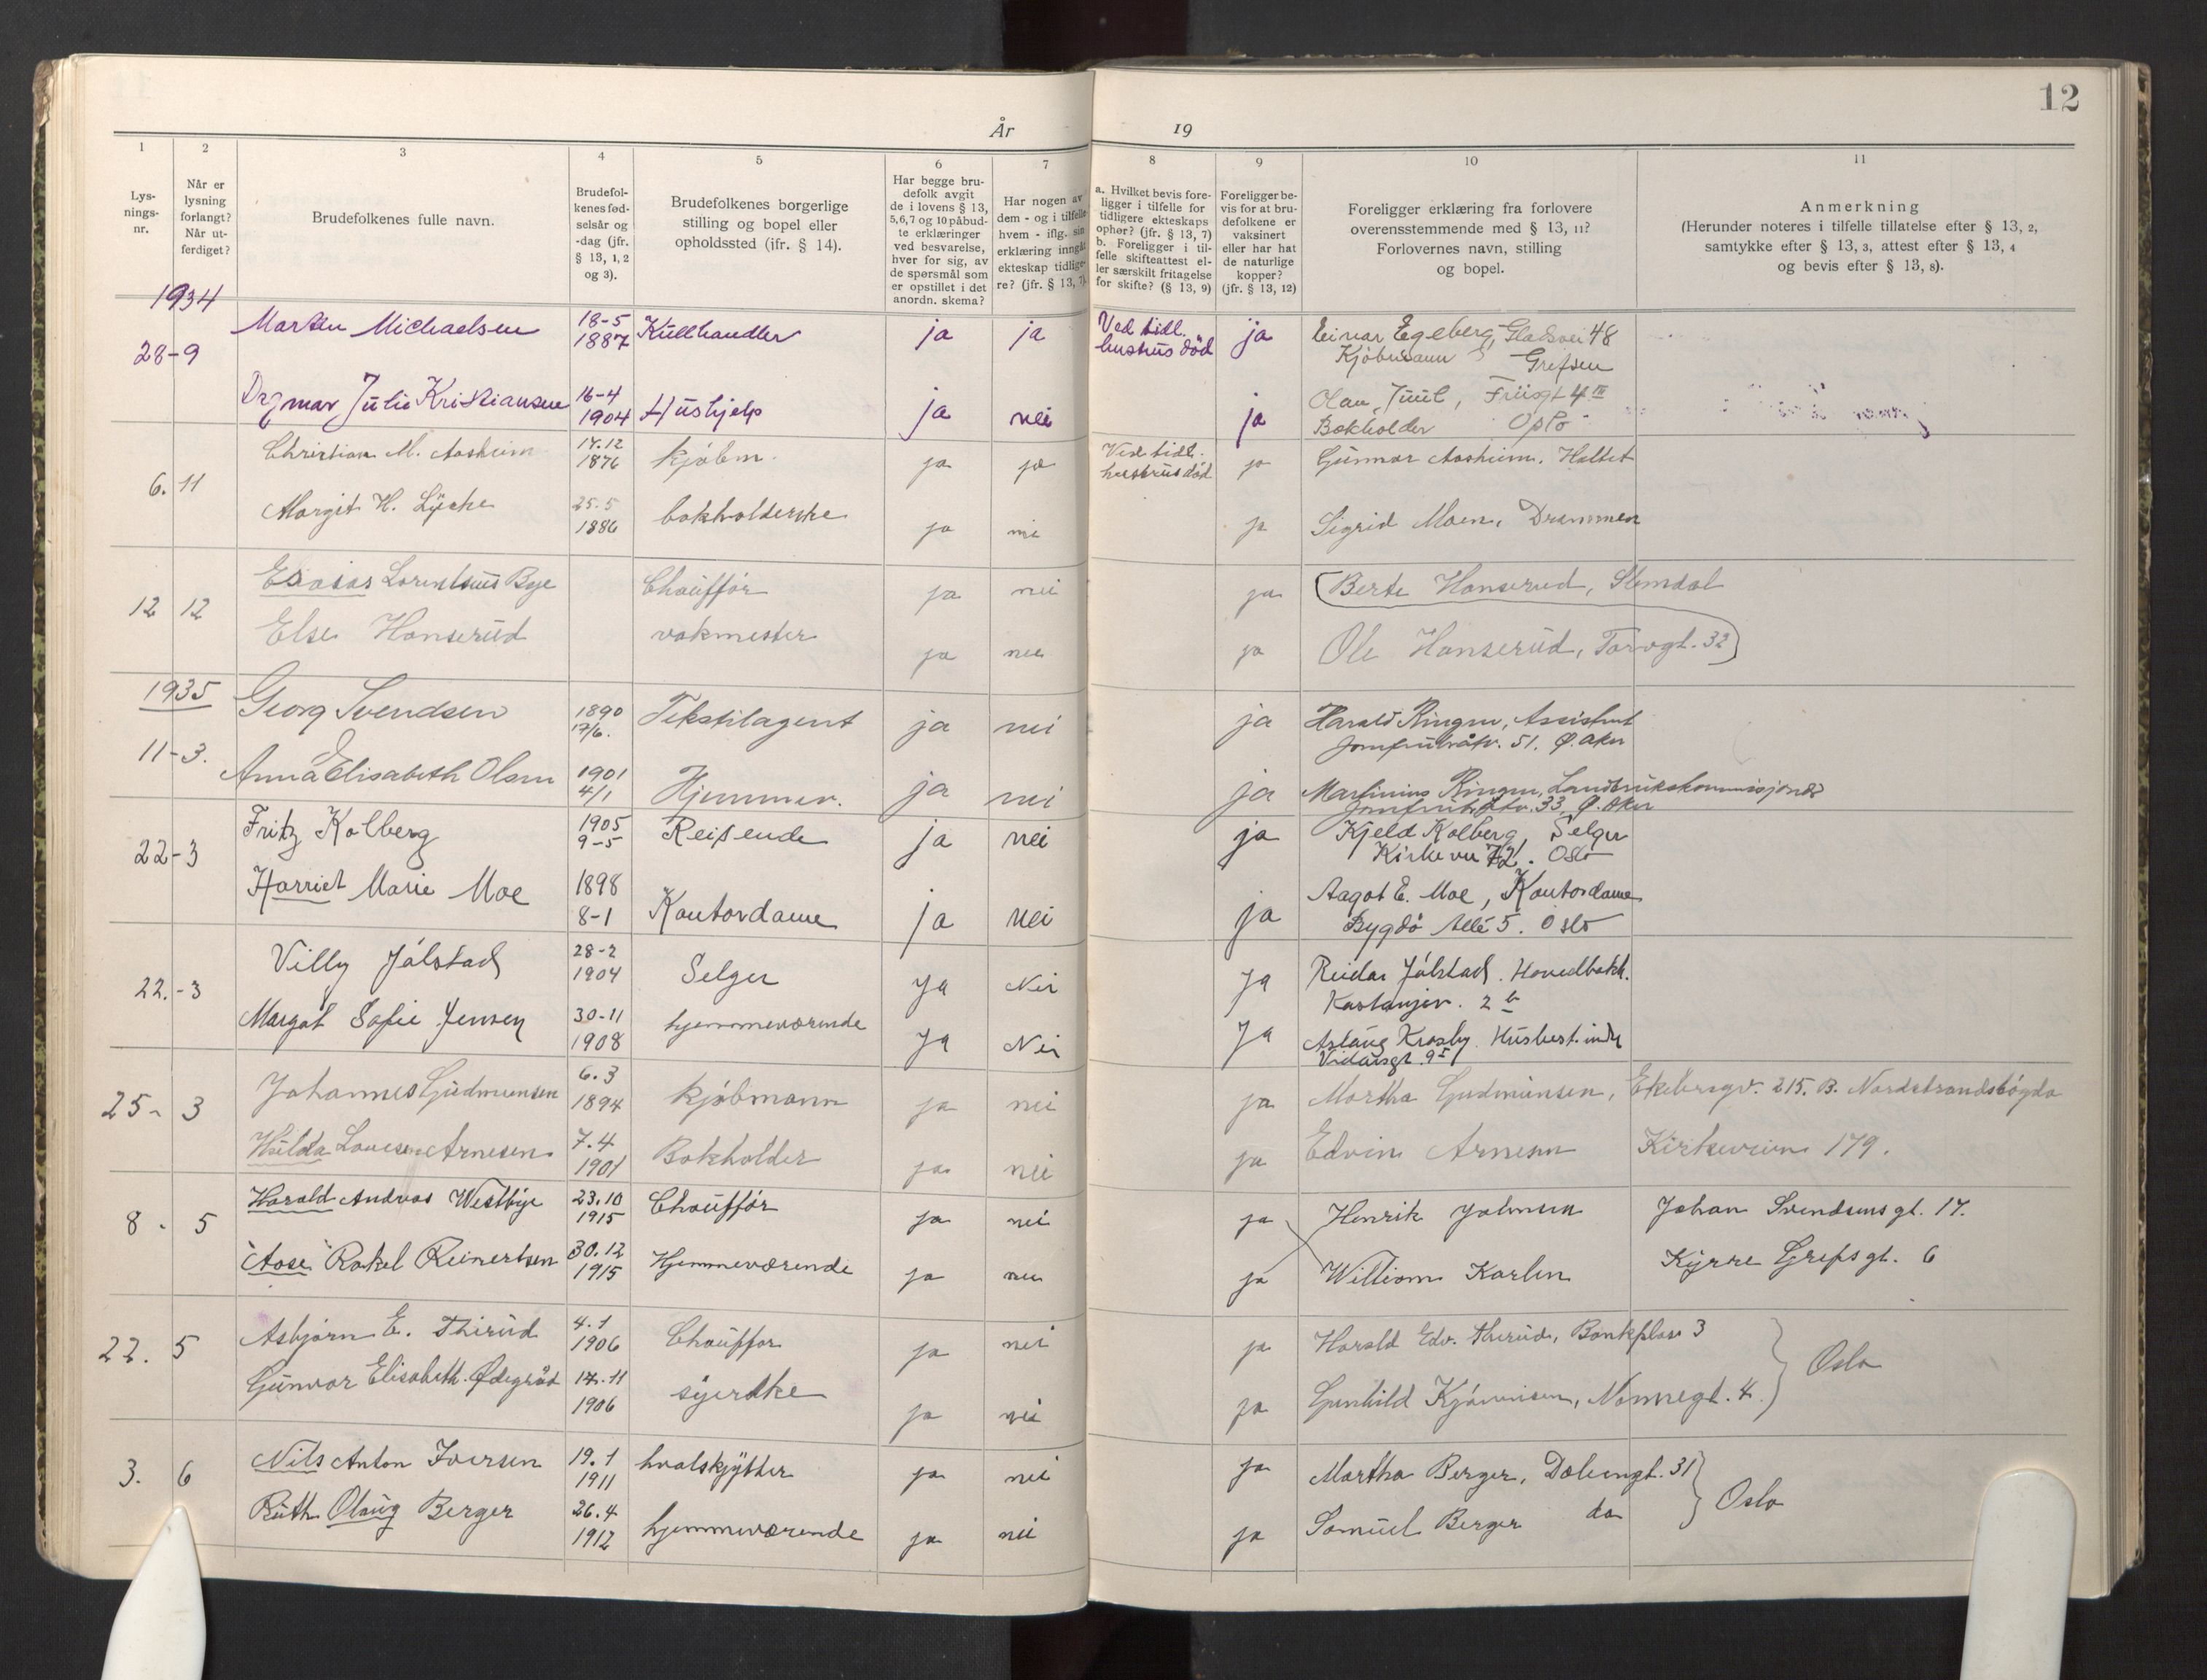 12
År 19
1 2 3 4 5 6 7 8 9 10 11
Lys-
nings-
nr.
Når er
lysning
forlangt?
Når ut-
ferdiget?
Brudefolkenes fulle navn.
Brudefol-
kenes fød-
selsår og
-dag (jfr.
§ 13, 1, 2
og 3).
Brudefolkenes borgerlige
stilling og bopel eller
opholdssted (ifr. § 14).
Har begge bru-
defolk avgit
de i lovens § 13,
5,6,7 og 10 påbud-
te erklæringer
ved besvarelse,
hver for sig, av
de spørsmål som
er opstillet i det
anordn. skema?
Har nogen av
dem - og i tilfelle
hvem - iflg. sin
erklæring inngått
ekteskap tidlige-
re? (jfr. § 13, 7).
a. Hvilket bevis fore-
ligger i tilfelle for
tidligere ekteskaps
ophør? (jfr. § 13, 7)
b. Foreligger i til-
felle skifteattest el-
ler særskilt fritagelse
for skifte? (§ 13, 9)
Foreligger be-
vis for at bru-
defolkene er
vaksinert
eller har hat
de naturlige
kopper?
(jfr. § 13, 12)
Foreligger erklæring fra forlovere
overensstemmende med § 13, 11?
Forlovernes navn, stilling
og bopel.
Anmerkning
(Herunder noteres i tilfelle tillatelse efter § 13, 2,
samtykke efter § 13, 3, attest efter § 13, 4
og bevis efter § 13, 8).
1934
28-9
Morten Michaelsen 18-5 1887 Kullhandler ja ja Ved tidl. hustrus död ja Einar Egeberg, Gladsvei 48
Kjøbmann Grefsen
Dagmar Julie Kristiansen 16-4 1904 Hushjelp ja nei ja Olau Juul, Friisgt 4 III
Bokholder Oslo
6. 11
Christian M. Aasheim 14.12 1876 kjøbm. ja ja Ved tidl. hustrus död ja Gunnar Aasheim, Holtet
Margit H. Lyche 25.5 1886 bokholderske ja nei ja Sigrid Moen, Drammen
12 12
Esaias Lorentsius Bye Chauffør ja nei ja Berte Hanserud, Slemdal
Else Hanserud vakmester ja nei ja Ole Hanserud, Torvgt. 32
1935
11-3.
Georg Svendsen 1890 17/6. Tekstilagent ja nei ja Harald Ringen, Assistent
Jomfrubråtv. 51. Ø. Aker
Anna Elisabeth Olsen 1901 4/1 Hjemmev. ja nei ja Martinius Ringen, Landbrukskommisjonær
Jomfrubråtv. 33 Ø. Aker
22-3
Fritz Kolberg 1905 9-5 Reisende ja nei ja Kjeld Kolberg, Selger
Kirkevei 72. Oslo
Harriet Marie Moe 1898 8-1 Kontordame ja nei ja Aagot E. Moe, Kontordame
Bygdø Allé 5. Oslo
22.-3
Villy Jålstad 28-2 1904 Selger Ja Nei Ja Reidar Jålstad. Hovedbokh.
Kastanjev. 2 b
Margot Sofie Jensen 30-11 1908 hjemmeværende Ja Nei Ja Aslaug Krosby. Husbest.inde
Vidarsgt. 9 I
25- 3
Johannes Gudmunsen 6.3 1894 kjøbmann ja nei ja Martha Gudmunsen, Ekebergv. 215. B. Nordstrandshøgda
Hulda Lovise Arnesen 7.4 1901 Bokholder ja nei ja Edvin Arnesen Kirkeveien 179.
8 . 5
Harald Andreas Westbye 23.10 1915 Chauffør ja nei ja Henrik Johnsen Johan Svendsens gt. 17.
"Aase" Rakel Reinertsen 30.12 1915 Hjemmeværende ja nei ja William Karlen Kyrre Grepsgt. 6
22. 5
Asbjørn E. Thirud 4.1 1906 Chauffør ja nei ja Harald Edv. Therud, Bankplass 3
Gunvor Elisabeth Ødegråd 17.11 1906 syerske ja nei ja Gunhild Kjønnisen, Nannegt. 4. } Oslo
3. 6
Nils Anton Iversen 19.1 1911 hvalskytter ja nei ja Martha Berger, Dælengt. 31
Ruth Olaug Berger 26.4 1912 hjemmeværende ja nei ja Samuel Berger do } Oslo